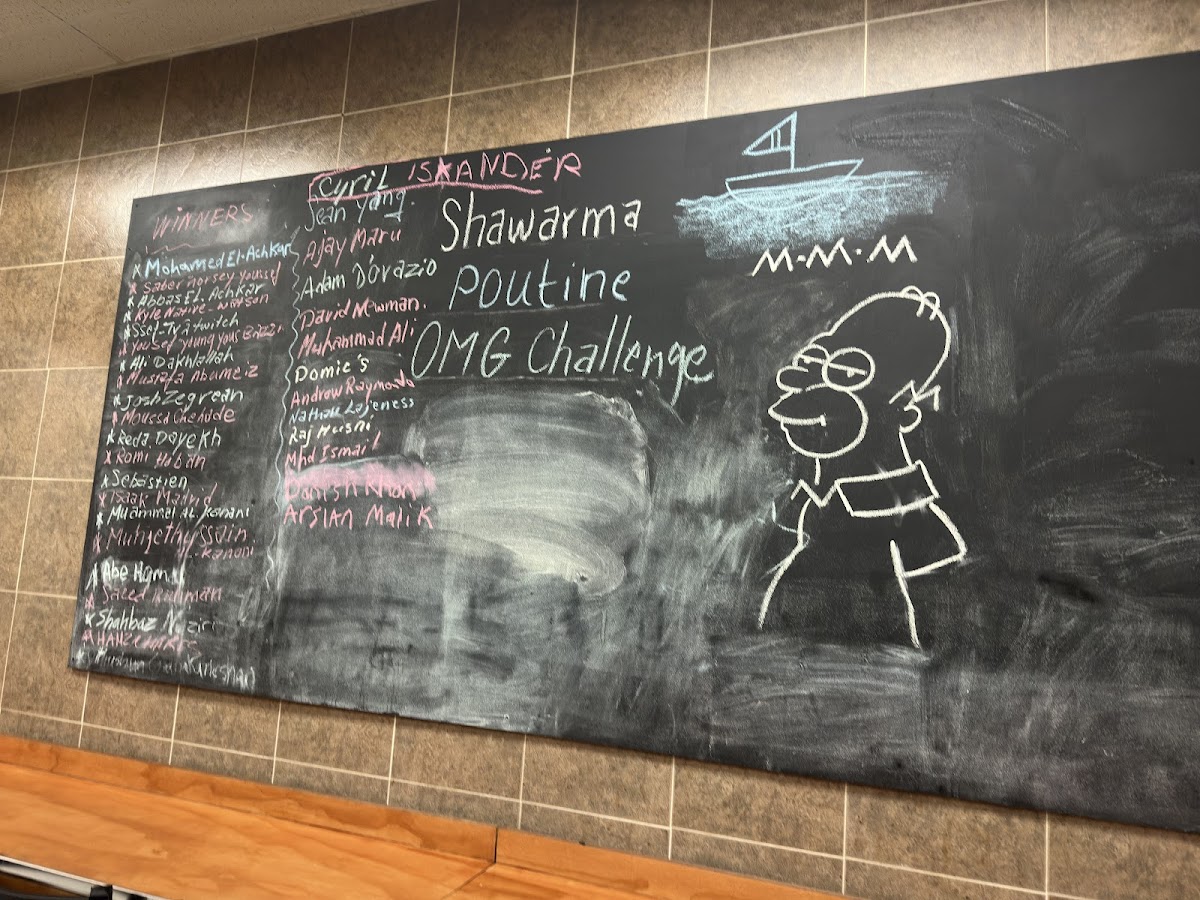 WINNERS
x Mohamed El-Achkar
x Saber norsey youssef
x Abbas EL Achkar
x Kyle Native-Watson
x Ssel-Tra twitch
x Yousef young yous Bazzi
x Ali Dakhlallah
x Mustafa Abumeiz
x Josh Zegrean
x Moussa Chehade
x Reda Dayekh
x Romi Hoban
x Sebastien
x Isaak Madrid
x Muammal AL-Kanani
x Abe
x Saeed
x Shahbaz
Cyril ISKANDER
Jean Yang.
Ajay Maru
Adam D'orazio
David Newman.
Muhammad Ali
Domic's
Andrew Raymonda
Nathan Lajeness
Raj Husni
Mhd Ismail
Danish Khan
ARSLAN MALIK
Shawarma
Poutine
OMG Challenge
M.M.M